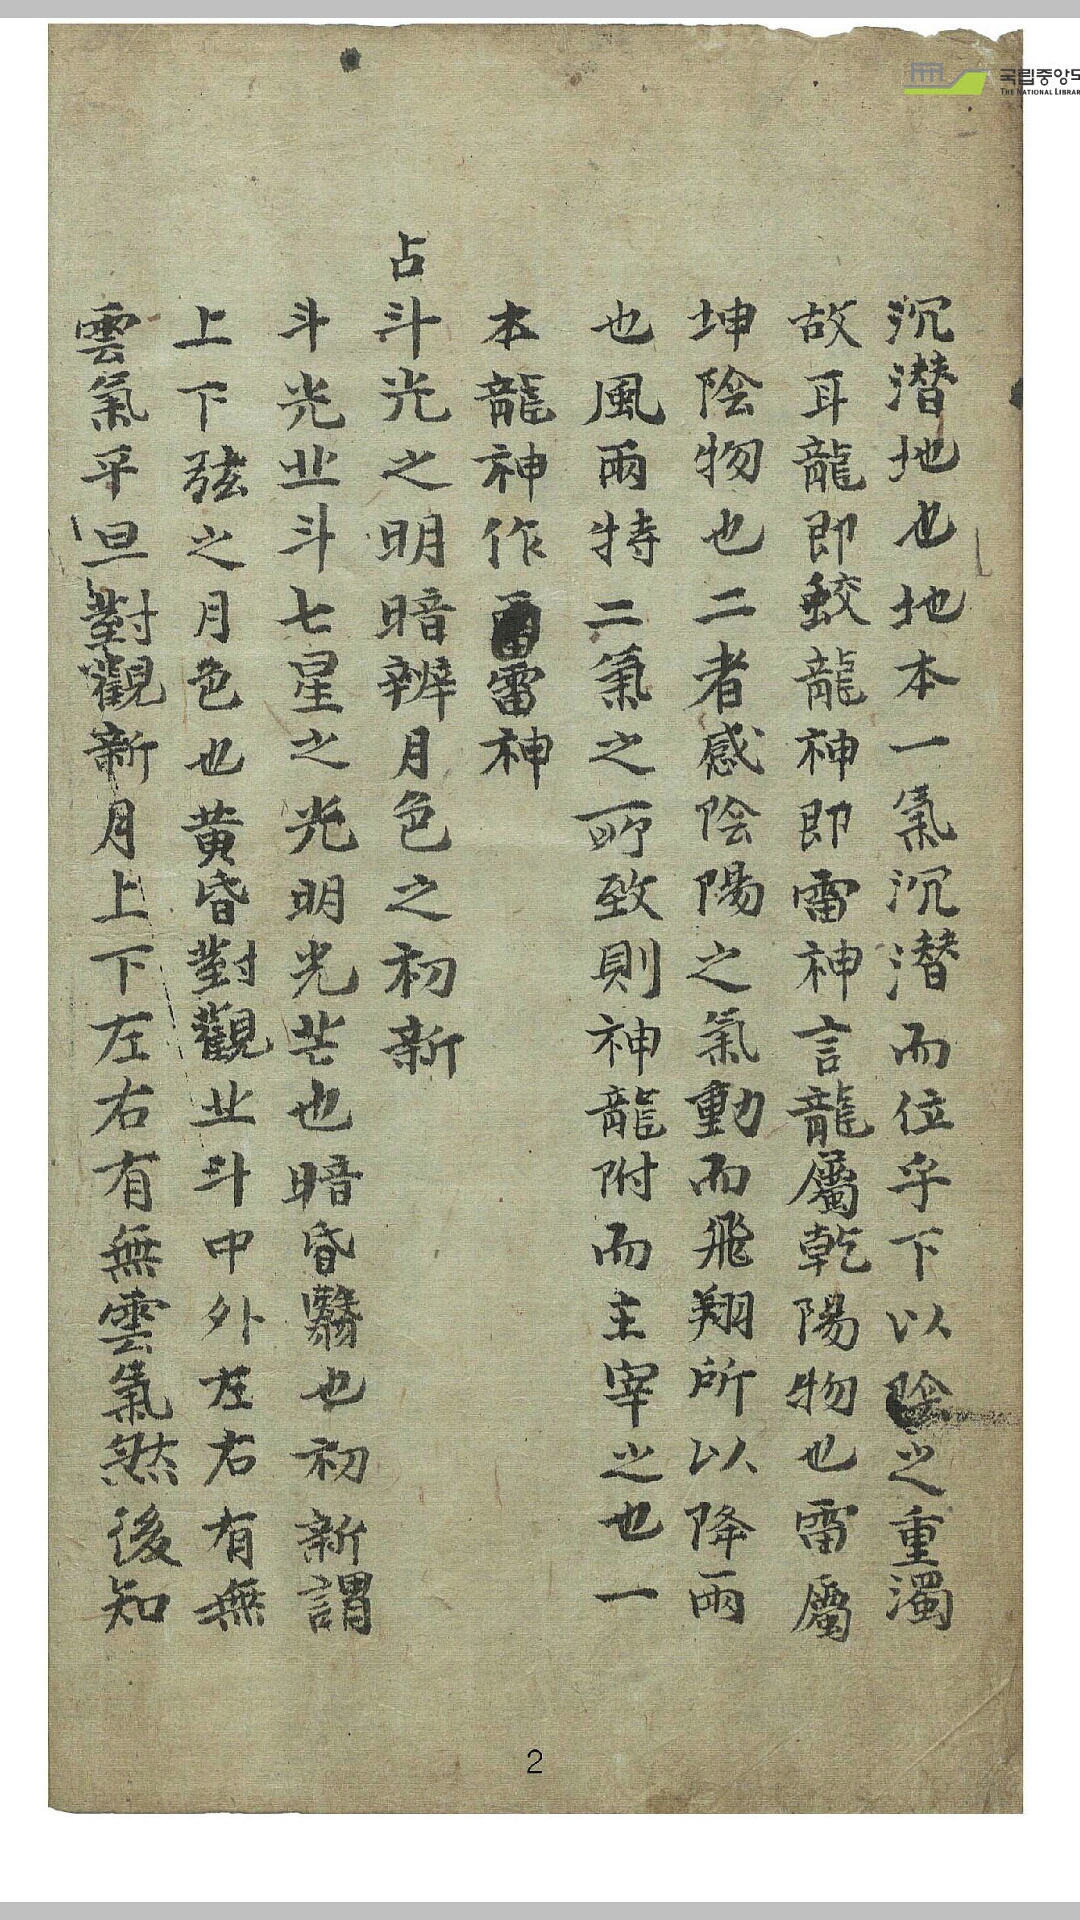 沉潛地也地本一氣沉潛而位乎下以陰之重濁
故耳龍即蛟龍神即雷神言龍屬乾陽物也雷屬
坤陰物也二者感陰陽之氣動而飛翔所以降雨
也風雨特二氣之所致則神龍附而主宰之也一
本龍神作雷神
占斗光之明暗辨月色之初新
斗光北斗七星之光明光芒也暗昏翳也初新謂
上下弦之月色也黃昏對觀北斗中外左右有無
雲氣平旦對觀新月上下左右有無雲氣然後知
국립중앙도
THE NATIONAL LIBRAR
2